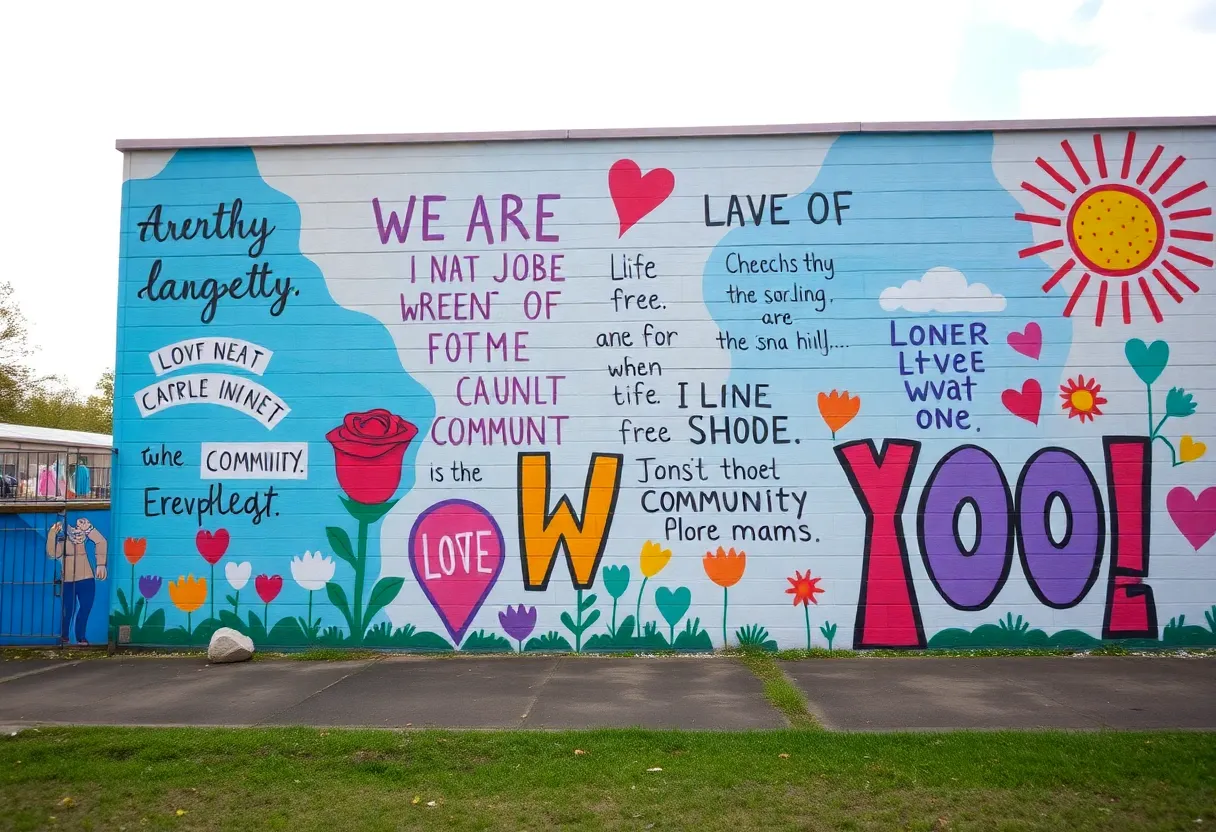 Arerthy
langpetty.
LOVF NEAT
CATRLE ININET
twhe COMMIITY.
Erevpleagt.
WE ARE
I NAT JOBE
WREEN OF
FOTME
CAUNLT
COMMUNT
is the
LOTE
W
Llife
free.
ane for
when
tife.
free
LAVE OF
Cheechs thy
the sorling,
are
the sna hilj....
I LINE
SHODE.
Jons't thoet
COMMUNITY
Plore mams.
LONER
LtVEE
WVAT
ONE.
YOO!